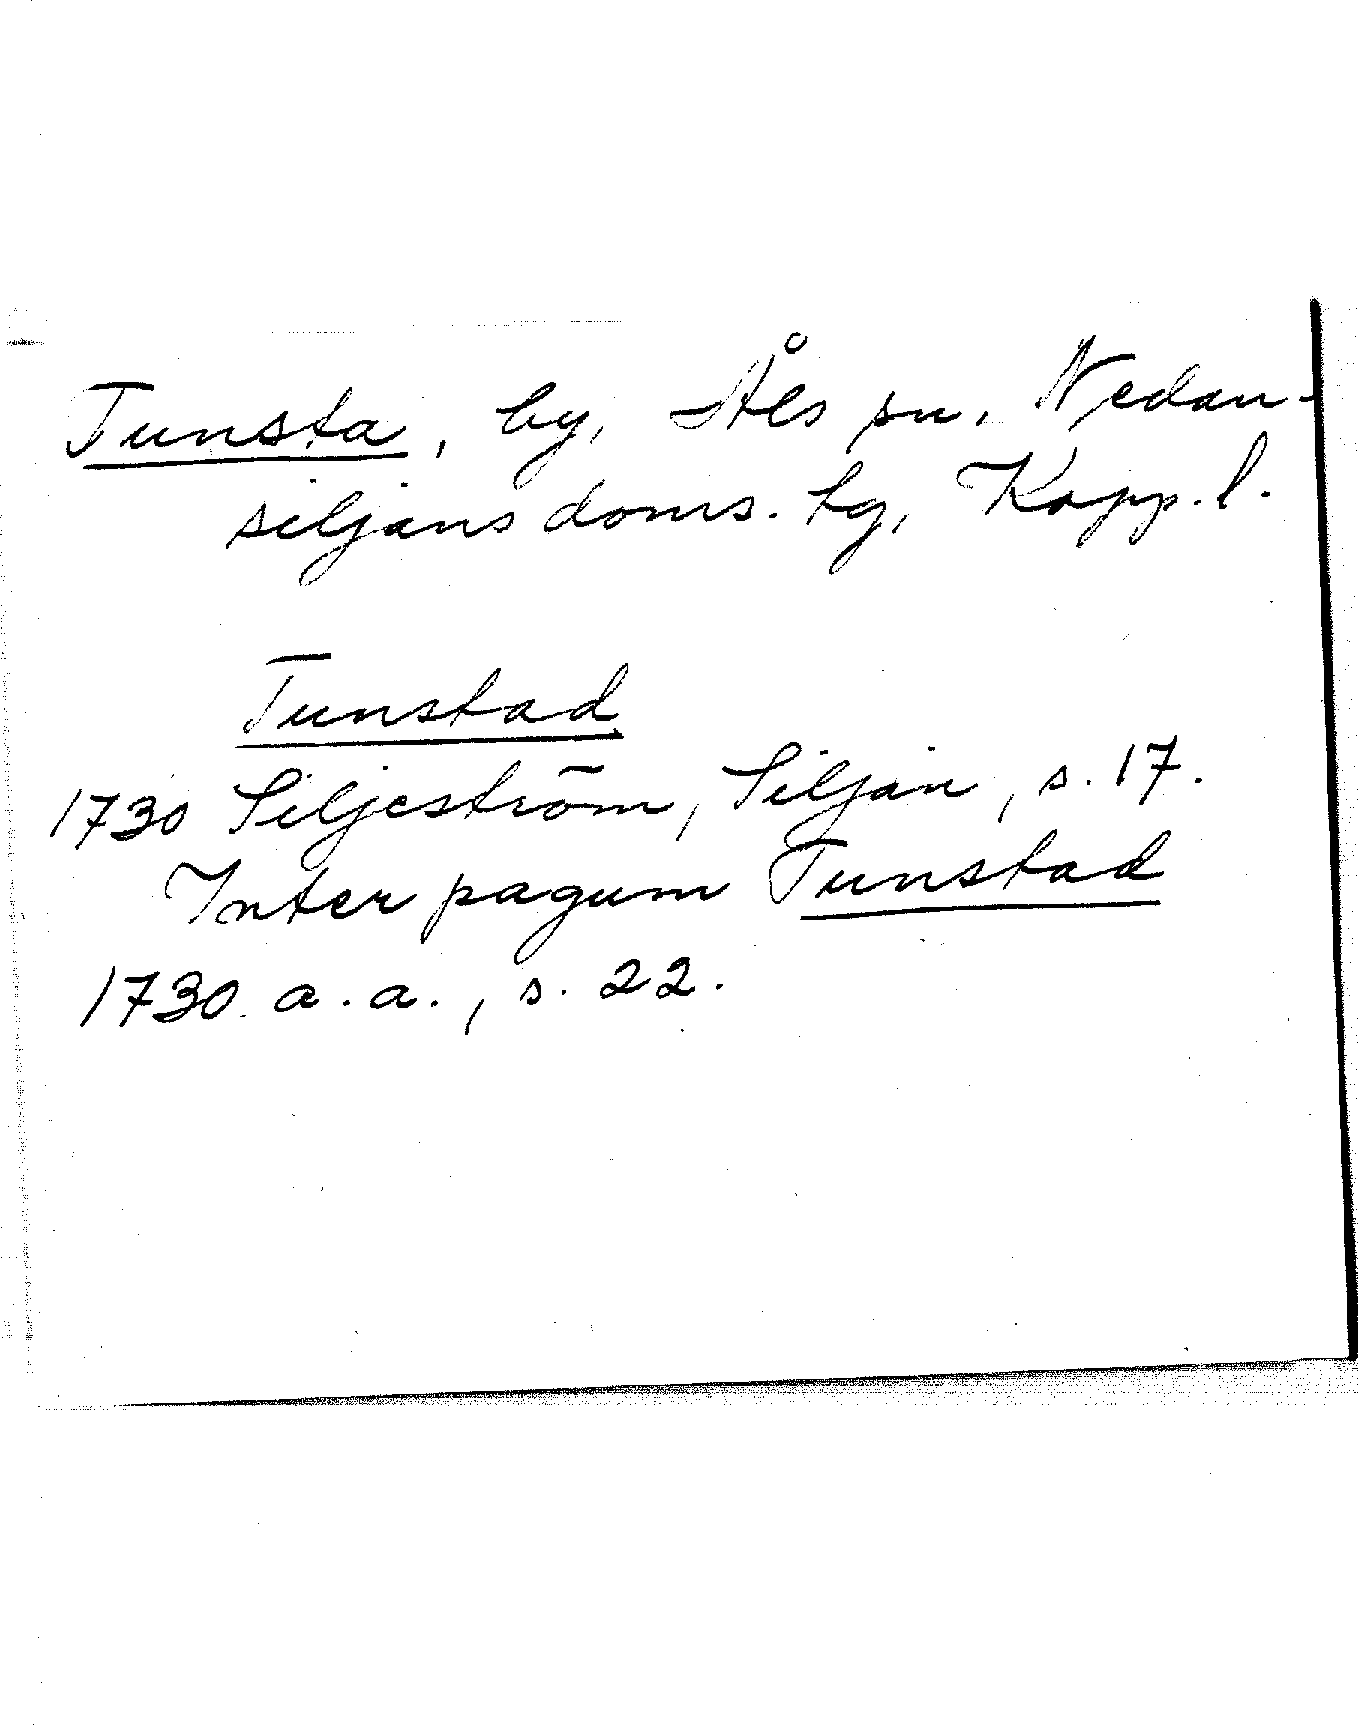 Tunsta, by, Åls sn, Nedan-
siljans doms. tg, Kopp. l.
Tunstad
1730 Siljeström, Siljan, s. 17.
Inter pagum Tunstad
1730. a. a., s. 22.